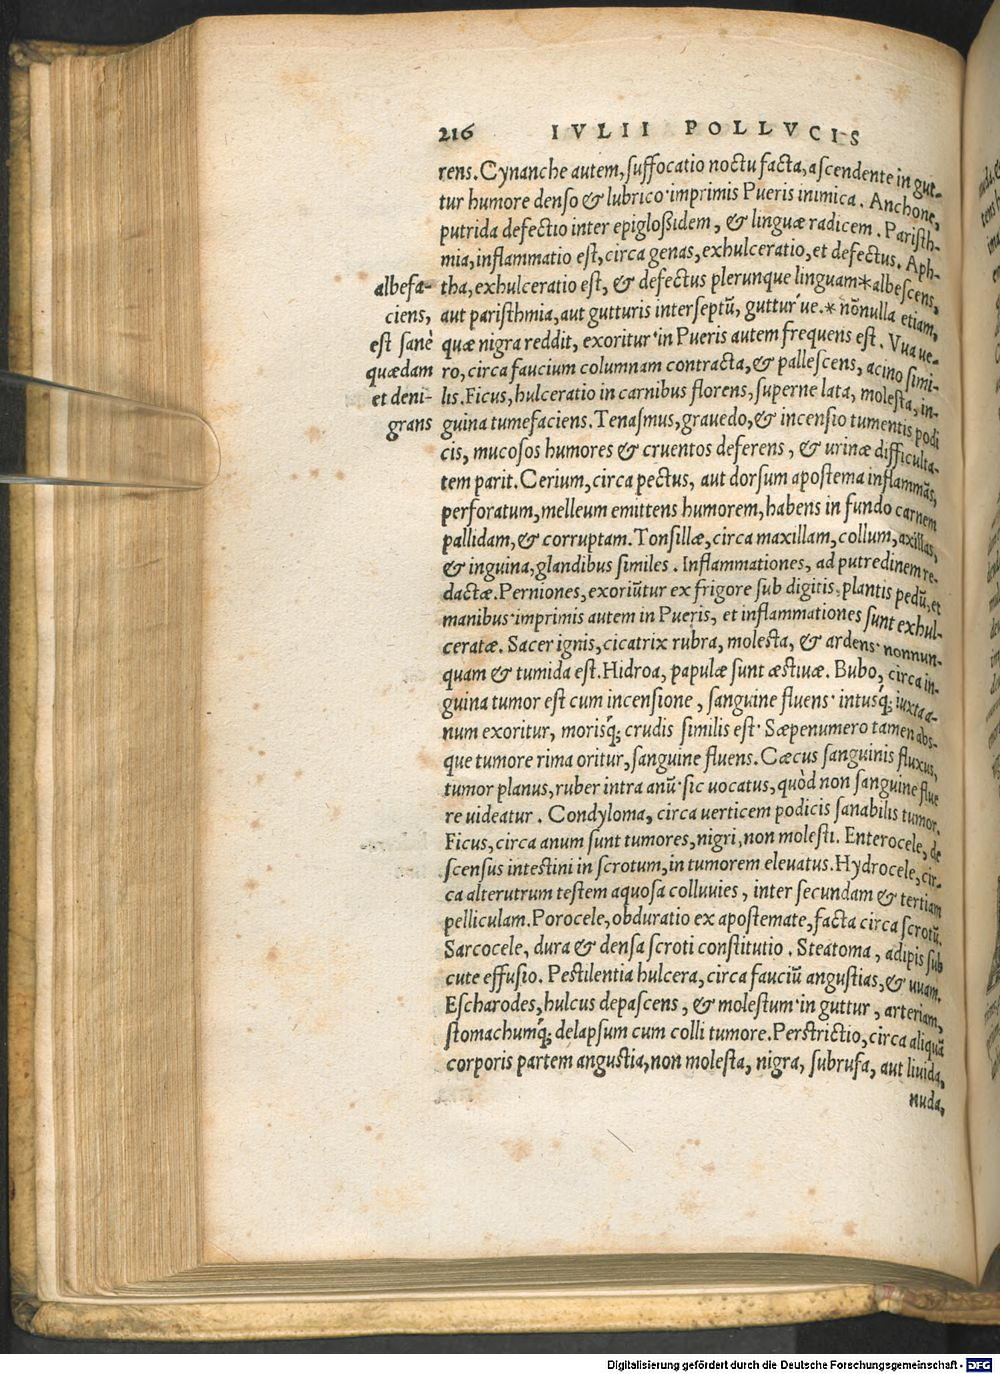 216 IVLII POLLVCIS
rens. Cynanche autem, suffocatio noctu facta, ascendente in gut-
tur humore denso & lubrico· imprimis Pueris inimica. Anchone,
putrida defectio inter epiglossidem, & linguæ radicem. Paristh-
mia, inflammatio est, circa genas, exhulceratio, et defectus. Aph-
tha, exhulceratio est, & defectus plerunque linguam*albescens,
aut paristhmia, aut gutturis interseptū, guttur ue.* nōnulla etiam,
quæ nigra reddit, exoritur· in Pueris autem frequens est. Vua ue-
ro, circa faucium columnam contracta, & pallescens, acino simi-
lis. Ficus, hulceratio in carnibus florens, superne lata, molesta, in-
guina tumefaciens. Tenasmus, grauedo, & incensio tumentis podi
cis, mucosos humores & cruentos deferens, & urinæ difficulta-
tem parit. Cerium, circa pectus, aut dorsum apostema inflammās,
perforatum, melleum emittens humorem, habens in fundo carnem
pallidam, & corruptam. Tonsillæ, circa maxillam, collum, axillas,
& inguina, glandibus similes. Inflammationes, ad putredinem re-
dactæ. Perniones, exoriūtur ex frigore sub digitis, plantis pedū, et
manibus· imprimis autem in Pueris, et inflammationes sunt exhul-
ceratæ. Sacer ignis, cicatrix rubra, molesta, & ardens· nonnun-
quam & tumida est. Hidroa, papulæ sunt æstiuæ. Bubo, circa in-
guina tumor est cum incensione, sanguine fluens· intusq́; iuxta a-
num exoritur, morisq́; crudis similis est· Sæpenumero tamen abs-
que tumore rima oritur, sanguine fluens. Cæcus sanguinis fluxus,
tumor planus, ruber intra anū· sic uocatus, quòd non sanguine flue
re uideatur. Condyloma, circa uerticem podicis sanabilis tumor.
Ficus, circa anum sunt tumores, nigri, non molesti. Enterocele, de
scensus intestini in scrotum, in tumorem eleuatus. Hydrocele, cir-
ca alterutrum testem aquosa colluuies, inter secundam & tertiam
pelliculam. Porocele, obduratio ex apostemate, facta circa scrotū.
Sarcocele, dura & densa scroti constitutio. Steatoma, adipis sub
cute effusio. Pestilentia hulcera, circa fauciū angustias, & uuam.
Escharodes, hulcus depascens, & molestum· in guttur, arteriam,
stomachumq́; delapsum cum colli tumore. Perstrictio, circa aliquā
corporis partem angustia, non molesta, nigra, subrufa, aut liuida,
nuda,
albefa-
ciens,
est sanè
quædam
et deni-
grans
Digitalisierung gefördert durch die Deutsche Forschungsgemeinschaft - DFG